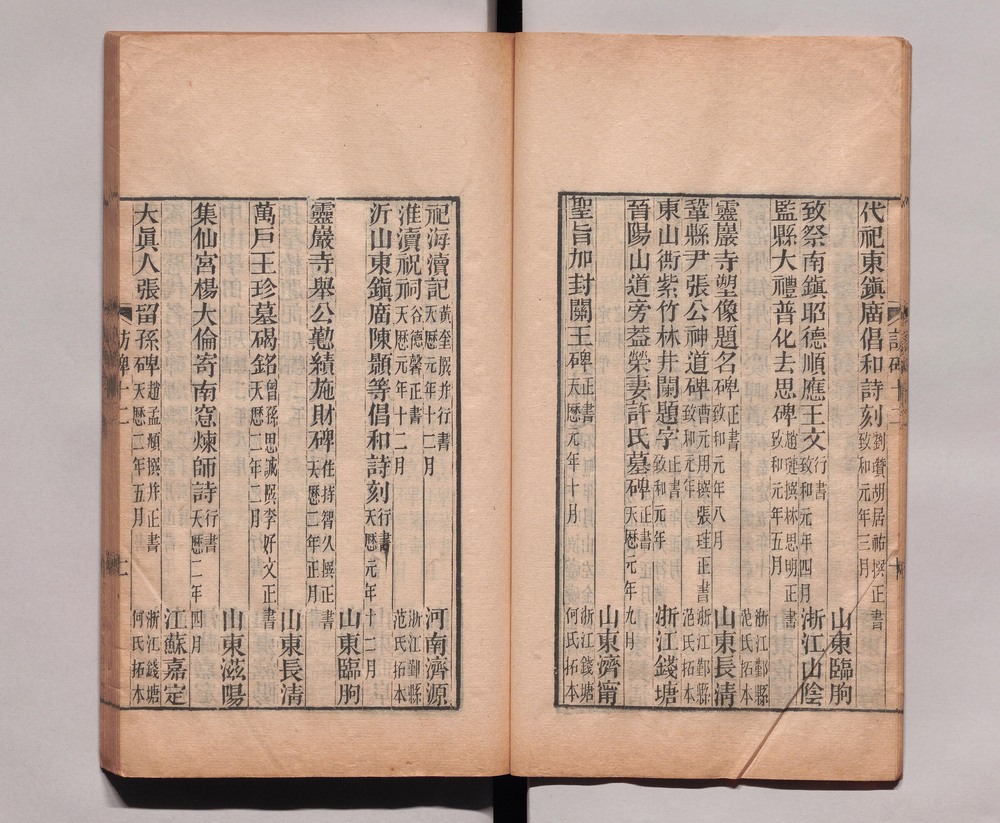 代祀東鎮廣倡和詩刻 劉贊胡居祐撰正書 致和元年三月 山東臨朐
致祭南鎮昭德順應王文 行書 致和元年四月 浙江山陰
監縣大禮普化去思碑 趙璉撰林思明正書 致和元年五月
靈巖寺塑像題名碑 正書 致和元年八月 山東長清
鞏縣尹張公神道碑 曹元用撰張珪正書 致和元年 浙江鄞縣范氏拓本
東山衖紫竹林井闌題字 正書 致和元年 浙江錢塘
晉陽山道旁葢榮妻許氏墓碑 正書 天歷元年九月 山東濟甯
聖旨加封關王碑 正書 天歷元年十月 浙江錢塘何氏拓本
祀海瀆記 黃奎撰幷行書 天歷元年十二月 河南濟源
淮瀆祝祠 谷德馨正書 天歷元年十二月 浙江鄞縣范氏拓本
沂山東鎮廣陳顥等倡和詩刻 行書 天歷元年十二月 山東臨朐
靈巖寺舉公懃績施財碑 住持智久撰正書 天歷二年正月 山東長清
萬戶王珍墓碣銘 曾孫思誠撰李好文正書 天歷二年二月 山東滋陽
集仙宮楊大倫寄南窻煉師詩 行書 天歷二年四月 江蘇嘉定
大眞人張留孫碑 趙孟頫撰幷正書 天歷二年五月 浙江錢塘何氏拓本
訪碑十二